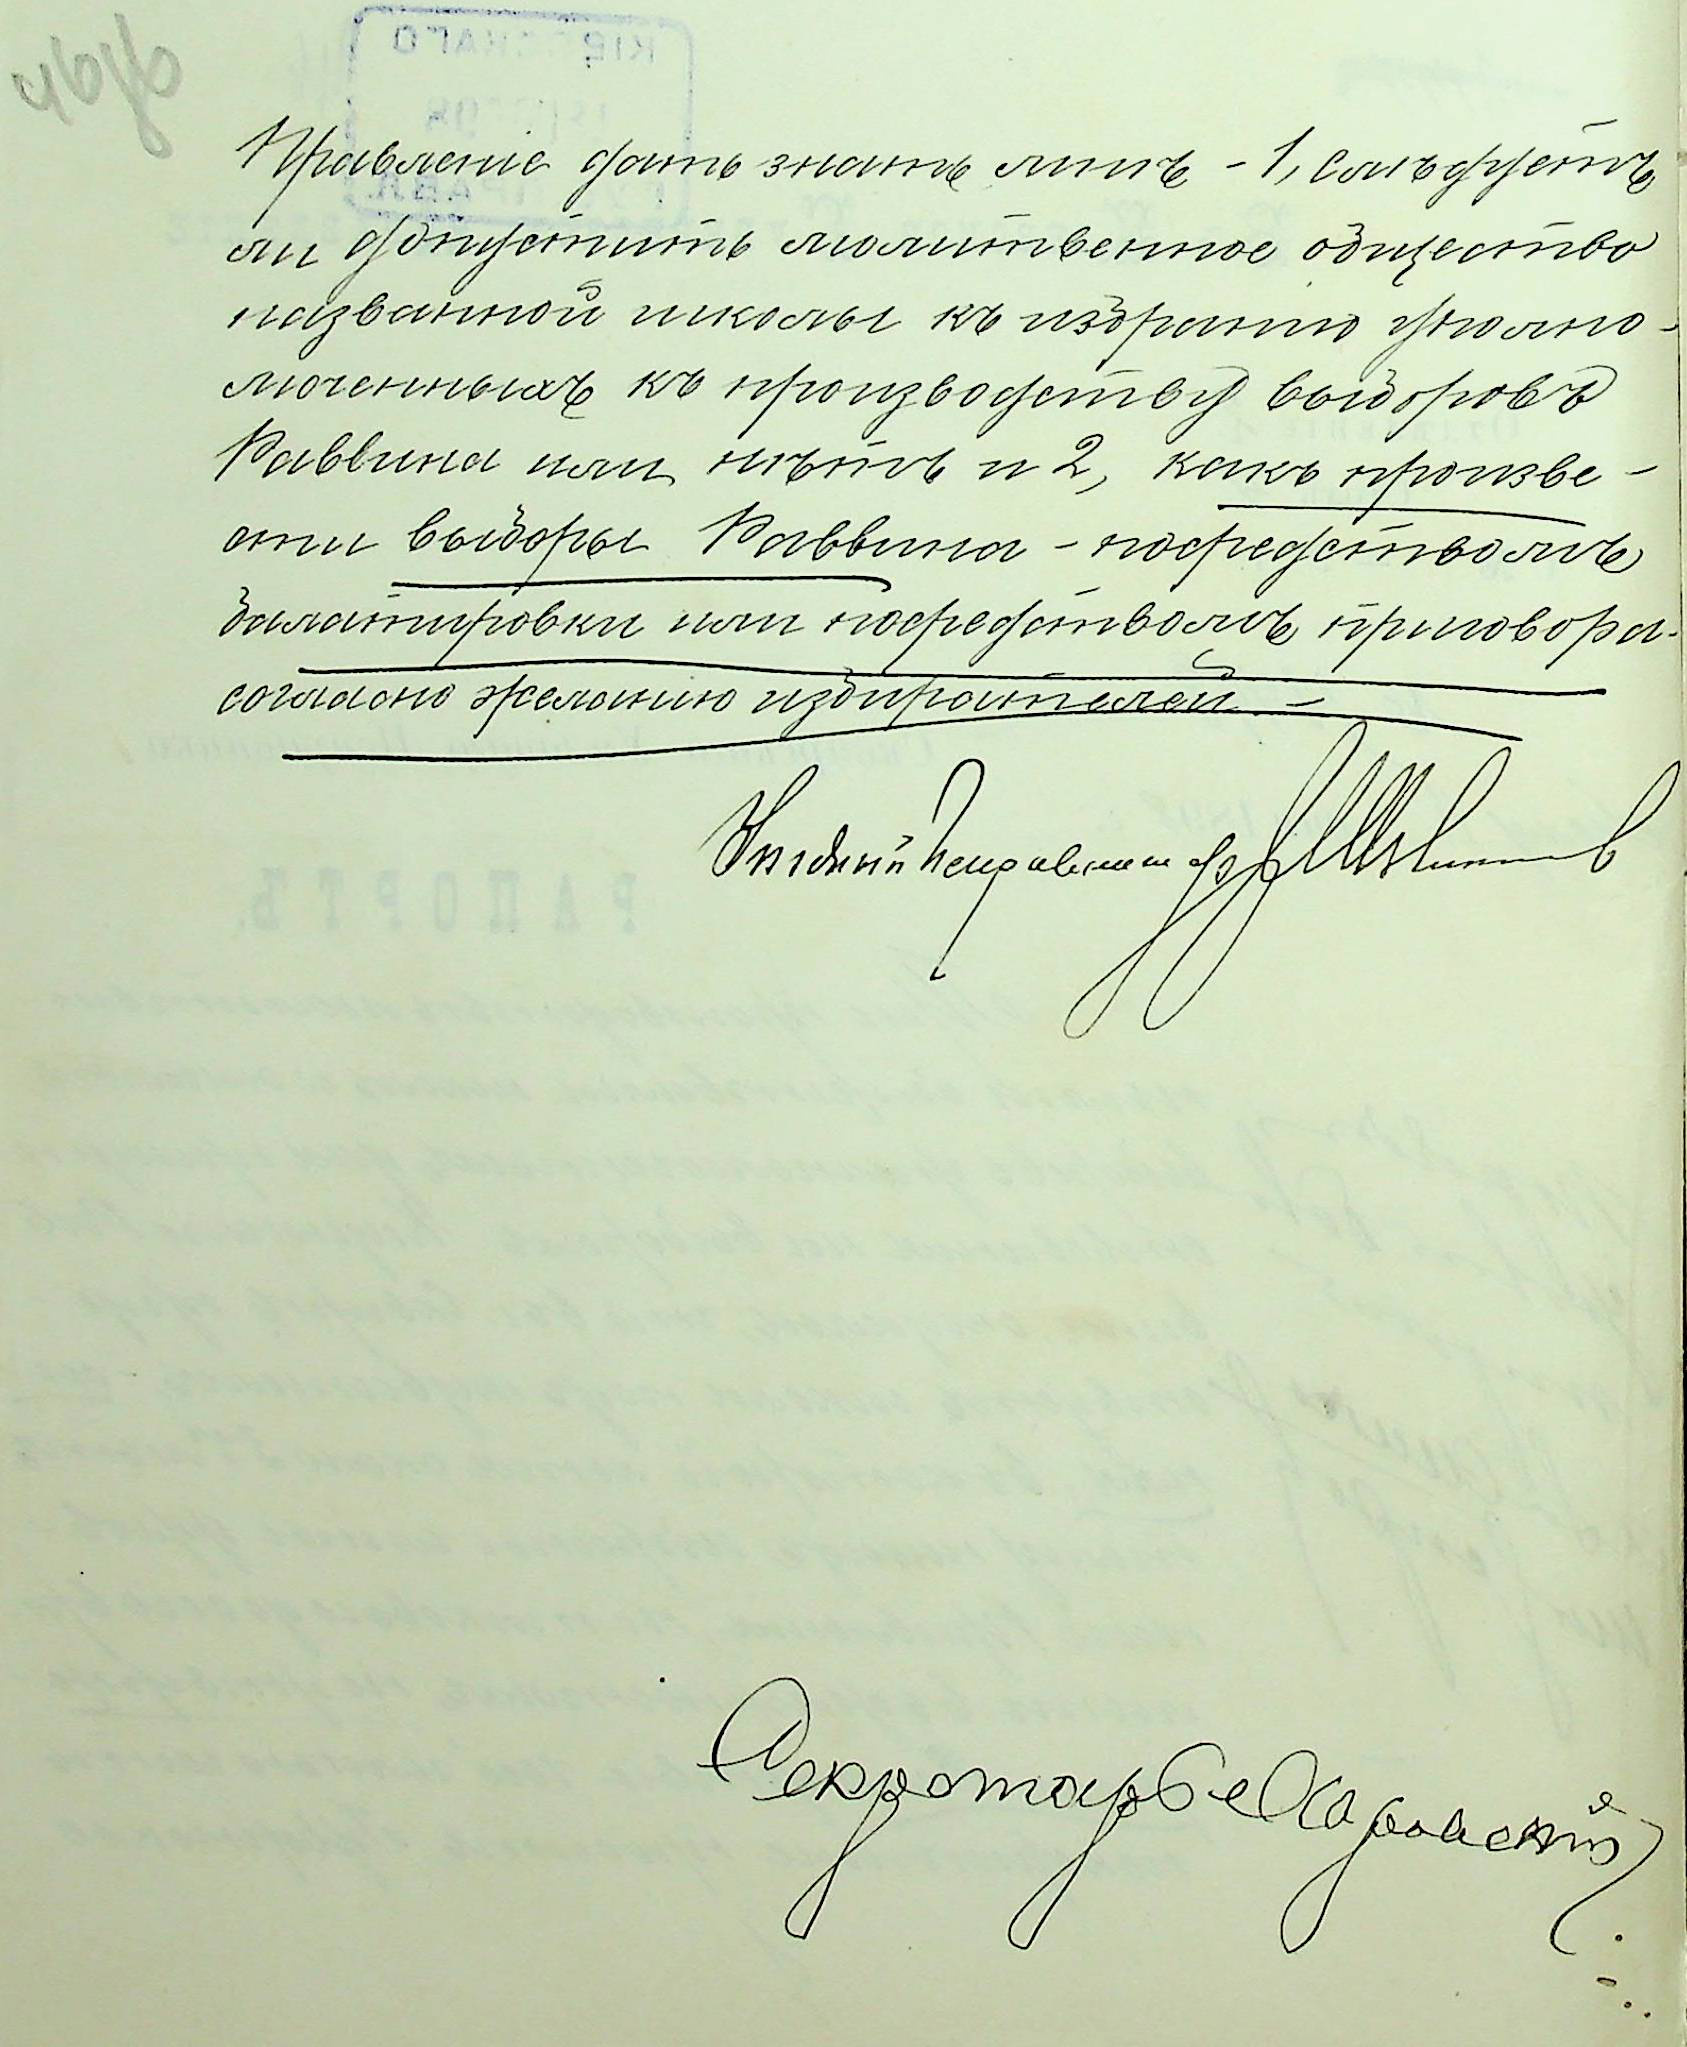 Правленіе дать знать мнѣ - 1, слѣдуетъ
ли допустить молитвенное общество
названной школы къ избранію уполно-
моченныхъ къ производству выборовъ
Раввина или нѣтъ и 2, какъ произве-
сти выборы Раввина - посредствомъ
балатировки или посредствомъ приговора -
согласно желанію избирателей. -
Уѣздный Исправникъ
Секретарь